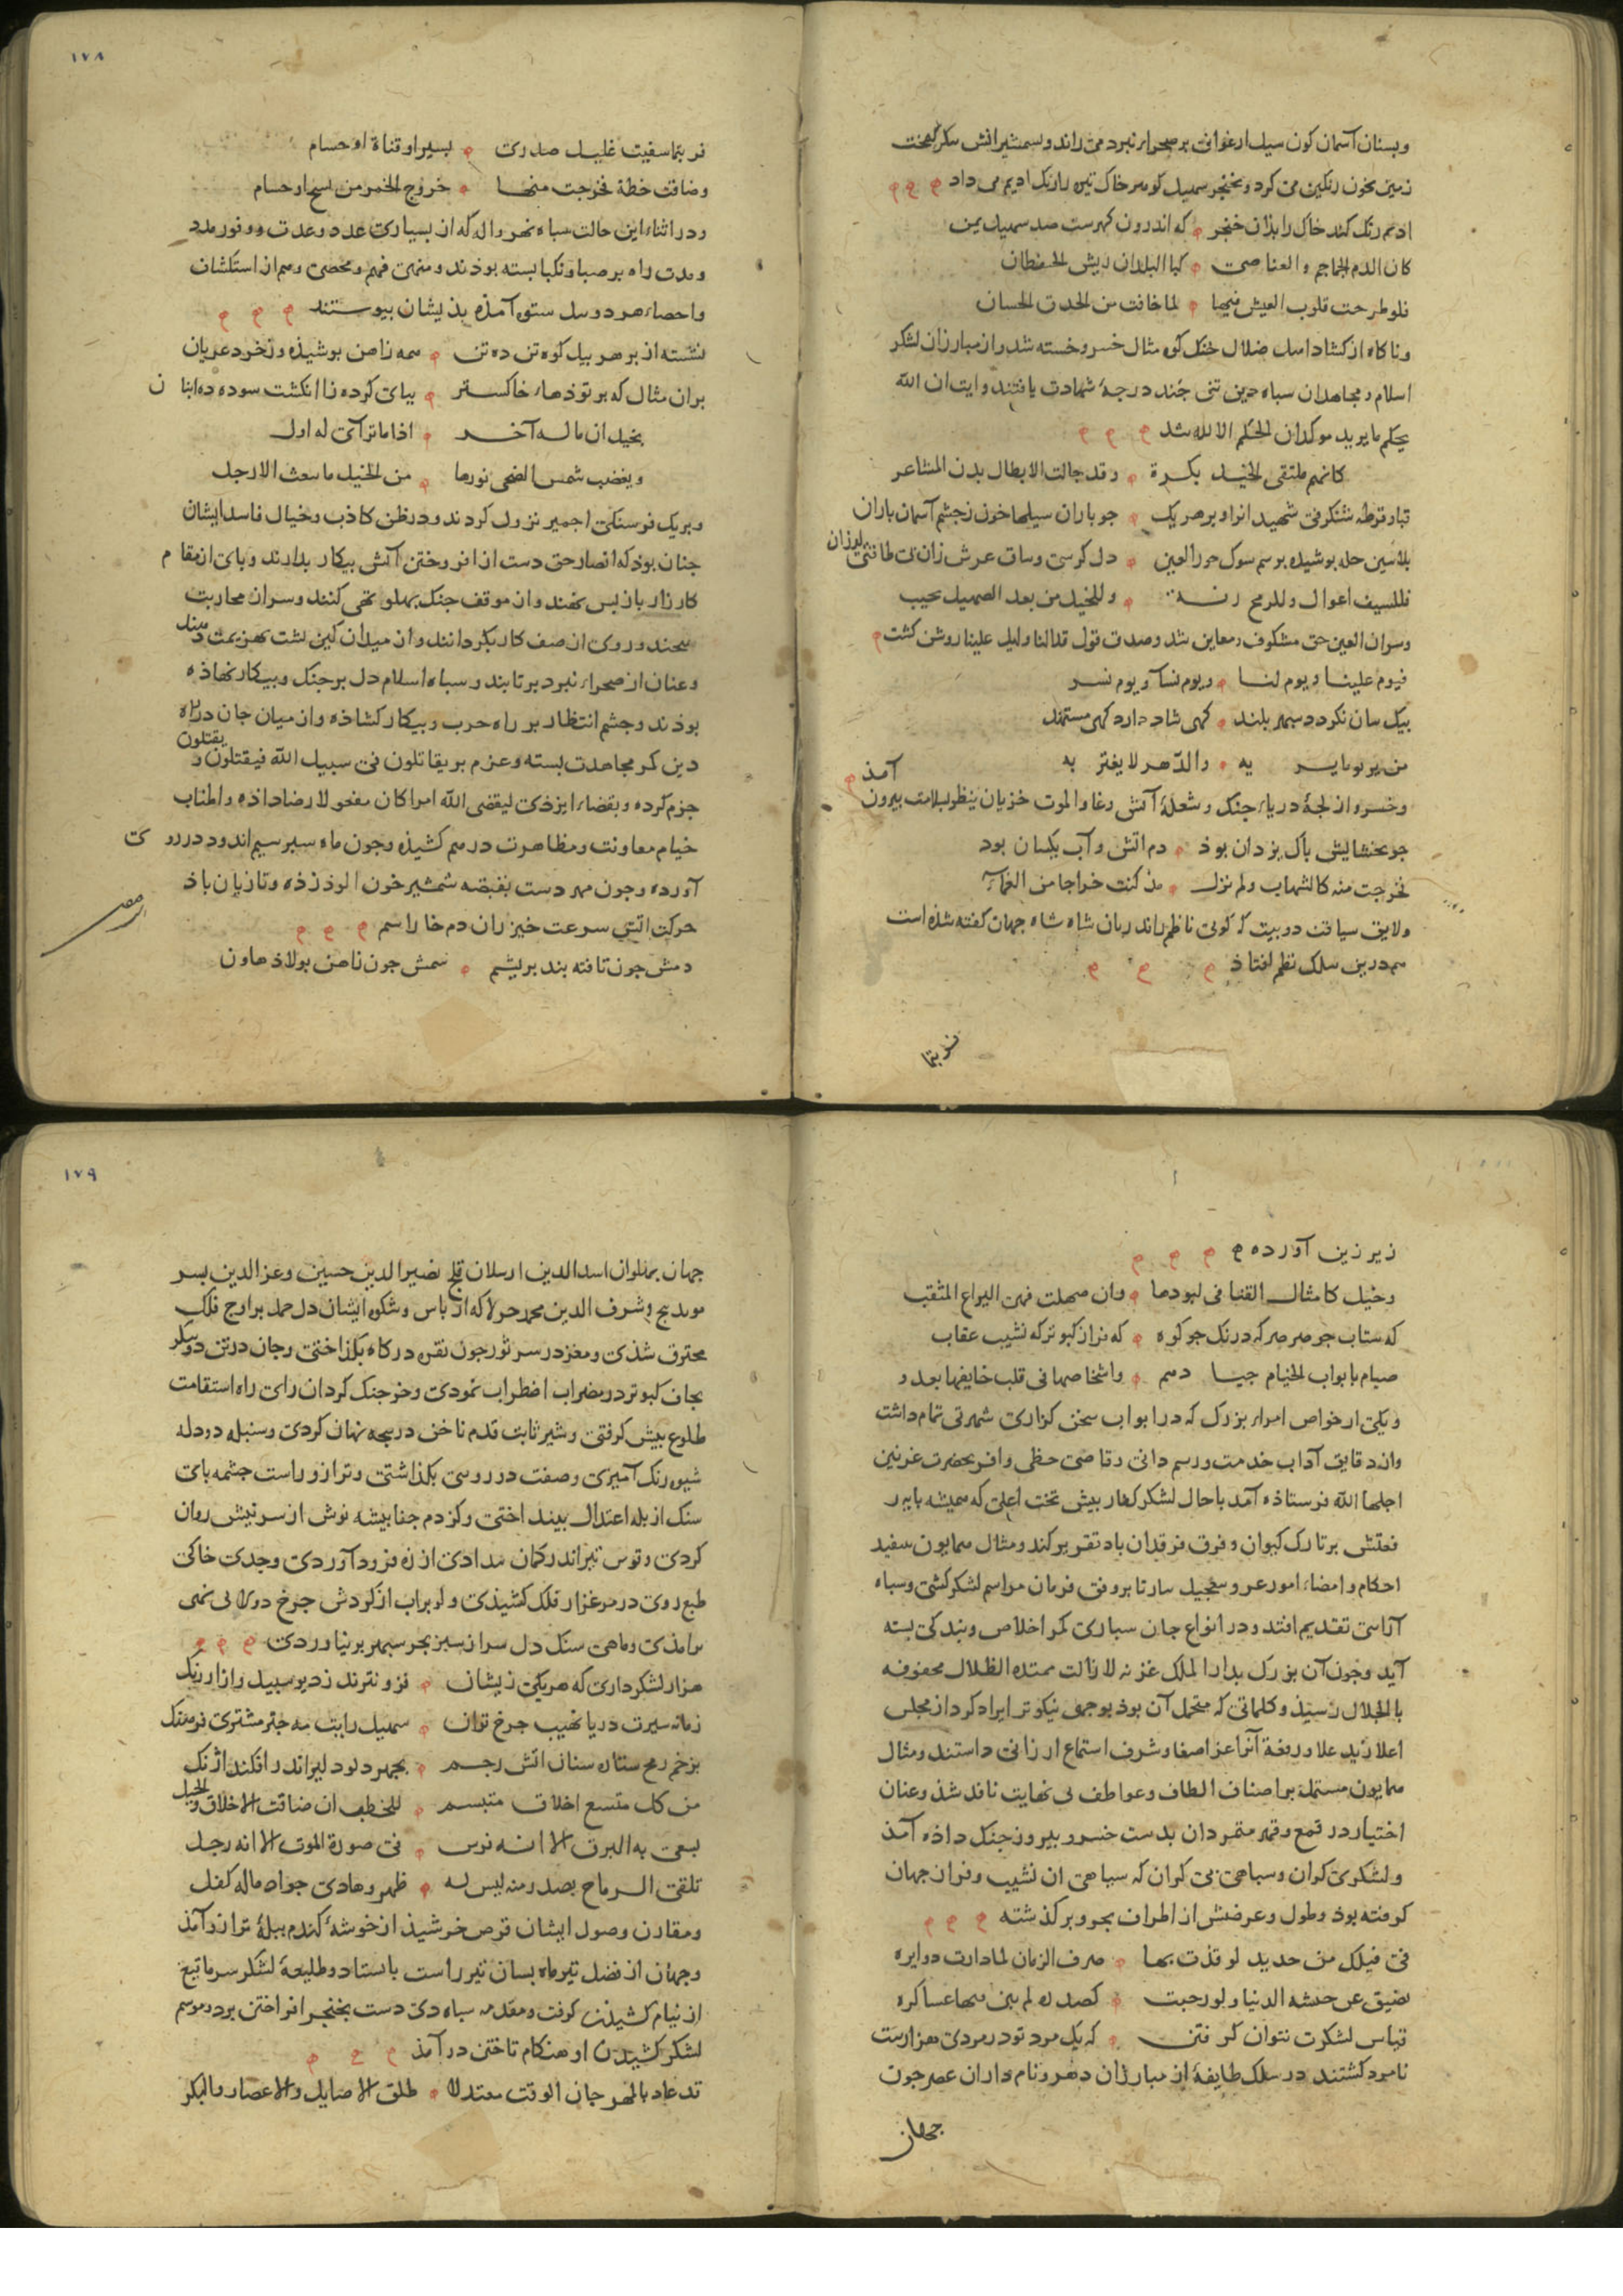 وبسنان آسمان کون سیل ارغوانی بر صحراء نبرد می راند وبشمشیر اتش
زمین بخون رنکین می کرد وبخنجر سهیل کوهر خاک تیره را رنک ادیم می داد
ادیم رنک کند خاک را بذان خنجر که اندرون کهرست صد سهیل یمن
کان الدم الجماجم والعناصی
فلو طرحت قلوب العیش فیها لما خافت من الحدق الحسان
وناکاه از کشاد اهل ضلال جنک کوه مثال خسرو خسته شد واز مبارزان لشکر
اسلام ومجاهدان سپاه دین تنی چند درجۀ شهادت یافتند وایت ان الله
یحکم ما یرید موکد ان الحکم الا لله شد
کانهم ملتقی الخیل بکرة وقد جالت الابطال بدن المشاعر
جو باران سیلها خون زجشم آسمان باران
بوشیده برسم سوک حور العین دل کرسی وساق عرش زان لرزان
فللسیف اعوال وللرمح رنة وللخیل من بعد الصهیل نحیب
وسر ان العین حق مشکوف ومعاین شد وصدق قول قدالنا ولیل علینا روشن کشت
فیوم علینا ویوم لنا ویوم نسآ ویوم نسر
بیک سان نکردد سپهر بلند کهی شاد دارد کهی مستمند
من یر یوما یر به والدهر لا یغتر به
وخسرو از لجۀ دریاء جنک وشعلۀ آتش وغا والموت خزیان ینظر بسلامت بیرون آمذ
جو بخشایش باک یزدان بوذ دم اتش وآب یکسان بود
فخرجت منه کالشهاب ولم نزل مذ کنت خراجا من الغماء
ولایق سیاقت دو بیت که کوئی ناظم راند زبان شاه شاه جهان کفته شذه است
هم درین سلک نظم افتاذ
فربتما
١٧٨
فربتما سفیت غلیل صدری بسیر او قناة او حسام
وضاقت خطة فخرجت منها خروج الخمر من نسج
ودر اثناء این حالت سپاه نهرواله که از بسیاری عدد وعدت ووفور مدد
ومدت راه بر صبا ونکبا بسته بوذند ومنهی فهم ومحصی وهم از استکشان
واحصاء هر دو سل ستوه آمذه بذیشان بیوستند
نشسته از بر هر بیل کوه تن ده تن همه ز اهن بوشیذه وزخود عریان
بران مثال که بر توذهاء خاکستر ببای کرده ز انکشت سوده ده ابنان
بخیل ان ماله آخر اذا ما ترآی له اول
ویغضب شمس الضحی نورها من الخیل ما الارجل
وبر یک فرسنکی اجمیر نزول کردند ودر ظن کاذب وخیال فاسد ایشان
جنان بوذ که انصار حق دست از افروختن آتش بیکار بدارند وبای از مقام
کارزار باز بس نهند وان موقف جنک بهلو تهی کنند وسر از محاربت
وروی از صف کار بکردانند واز میدان کین بشت بهزیمت دهند
وعنان از صحراء نبرد برتابند وسپاه اسلام دل بر جنک وبیکار نهاذه
بوذند وجشم انتظار بر راه حرب وبیکار کشاذه واز میان جان در راه
دین کمر مجاهدت بسته وعزم بر یقاتلون فی سبیل الله فیقتلون ویقتلون
جزم کرده وبقضاء ایزذی لیقضی الله امرا کان مفعولا رضا داذه واطناب
خیام معاونت ومظاهرت درهم کشیذه وجون ماه سپر سیم اندود در روی
آورده وجون مهر دست بقبضه شمشیر خون الوذ زذه وتازیان باذ
حرکت اتش سرعت خیزران دم خارا سم
دمش جون تافته بند بریشم سمش جون ز اهن بولاذ هاون
زیر زین آورده
وخیل کامثال القنا فی لبودها وان صهلت فهی الیراع المثقب
که شتاب جو صرصر که درنک جو کوه که فراز کبوتر که نشیب عقاب
صیام بابواب الخیام جیادهم واشخاصها فی قلب خایفها بعدو
ویکی از خواص امراء بزرک که در ابواب سخن کزاری شهرتی تمام داشت
واز دقایق آداب خدمت ورسم دانی وتاضی حظی وافر بحضرت غزنین
اجلها الله فرستاذه آمد تا حال لشکر کفار بیش تخت اعلی که همیشه بایه
رفعتش بر تارک کیوان وفرق فرقدان باد تقریر کند ومثال همایون
احکام وامضاء امور سارتا بر وفق فرمان مراسم لشکر کشی وسپاه
آرائی تقدیم افتد ودر انواع جان سپاری کمر اخلاص وبندکی بسته
آید وجون آن بزرک بدار الملک غزنه لا زالت ممتدة الظلال محفوفه
بالجلال رسیذ وکلماتی که متحمل آن بود بوجهی نیکوتر ایراد کرد از مجلس
اعلا زید علا ورفعة آنرا عز اصغا وشرف استماع ارزانی داشتند ومثال
همایون مشتمل بر اصناف الطاف وعواطف بی نهایت نافذ شذ وعنان
اختیار در قمع وقهر متمردان بدست خسرو بیروز جنک داذه آمذ
ولشکری کران وسپاهی بی کران که سیاهی ان نشیب وفراز جهان
کرفته بوذ وطول وعرضش از اطراف بحر وبر کذشته
فی فیلق من حدید لو قذفت بها صرف الزمان لما دارت دوایره
تضیق عن جیشه الدنیا ولو رحبت کصدره لم بین فیها عساکره
قیاس لشکرت نتوان کرفتن که یک مرد تو در مردی هزارست
نامزد کشتند در سلک طایفۀ از مبارزان دهر ونام داران عصر جون
جهان
١٧٩
جهان بهلوان اسد الدین ارسلان قلج نصیر الدین حسین وعز الدین بسر
وشرف الدین محمد که از باس وشکوه ایشان دل حمل بر اوج فلک
محترق شذی ومغز در سر ثور جون نقره در کاه بکذاختی وجان در تن دو بیکر
بجان کبوتر در مضراب اضطراب نمودی وخرجنک کردان رای راه استقامت
طلوع بیش کرفتی وشیر ثابت قدم ناخن در بنجه نهان کردی وسنبله دردله
شیوه رنک آمیزی وصفت دو روئی بکذاشتی وترازو راست جشمه بای
سنک از بله اعتدال بینداختی وکزدم جفا بیشه نوش از سر نیش روان
کردی وقوس تیر اندر کمان مدادی از زه فروذ آوردی وجدی خاکی
طبع روی در مرغزار فلک کشیذی ودلو براب از کردش جرخ دولابی نمی
برامذی وماهی سنک دل سر از سبز بحر سپهر برنیاوردی
هزار لشکرداری که هر یکی زیشان فزونترند زد بو سبیل وز ارزنک
زمانه سیرت دریا نهیب جرخ توان سهیل رایت مه جتر مشتری فرهنک
بزخم رمح ستاره سنان اتش رجم
من کل متسع اخلاق متبسم للخطب ان ضاقت الاخلاق والحیل
یسعی به البرق الا انه فرس فی صورة الموت الا انه رجل
تلقی الرماح بصدر منه لیس له ظهر وهادی جواد ماله کفل
ومقارن وصول ایشان قرص خرشیذ از خوشۀ کندم ببلۀ ترازو آمذ
وجهان از فضل تیرماه بسان تیر راست باستاد وطلیعۀ لشکر سرما تیغ
از نیام کشیذن کرفت ومقدمه سپاه دی دست بخنجر افراختن برد وموسم
لشکر کشیدن او هنکام تاختن درآمذ
قد عاد بالمهرجان الوقت معتدلا طلق الاصایل والاعصار والبکر